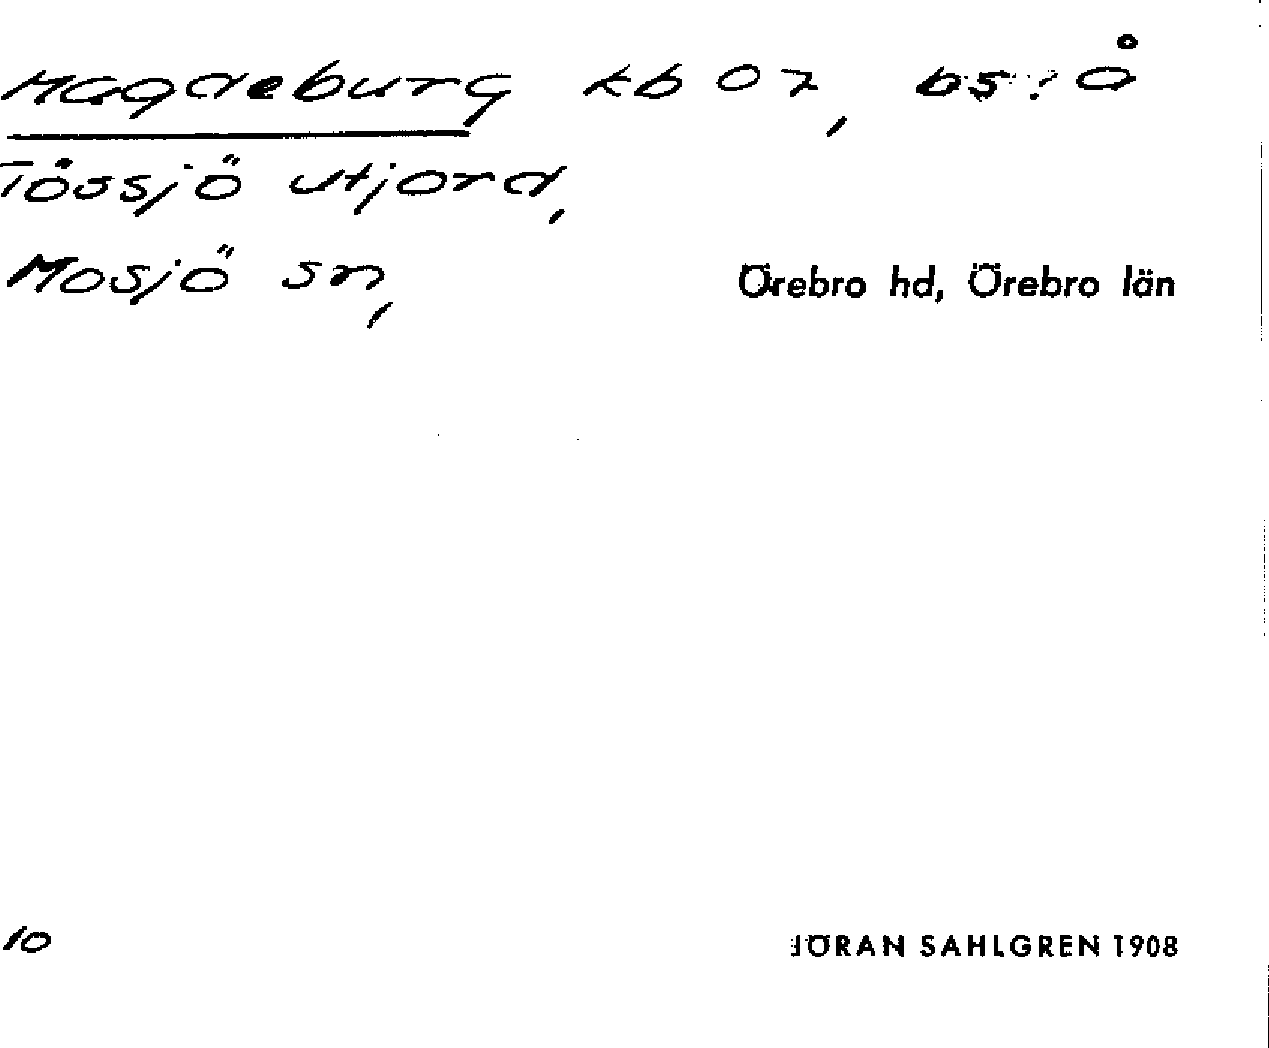 Magdeburg kb 02, bs. i Å
Tössjö utjord,
Mosjö sn, Örebro hd, Örebro län
10
JÖRAN SAHLGREN 1908